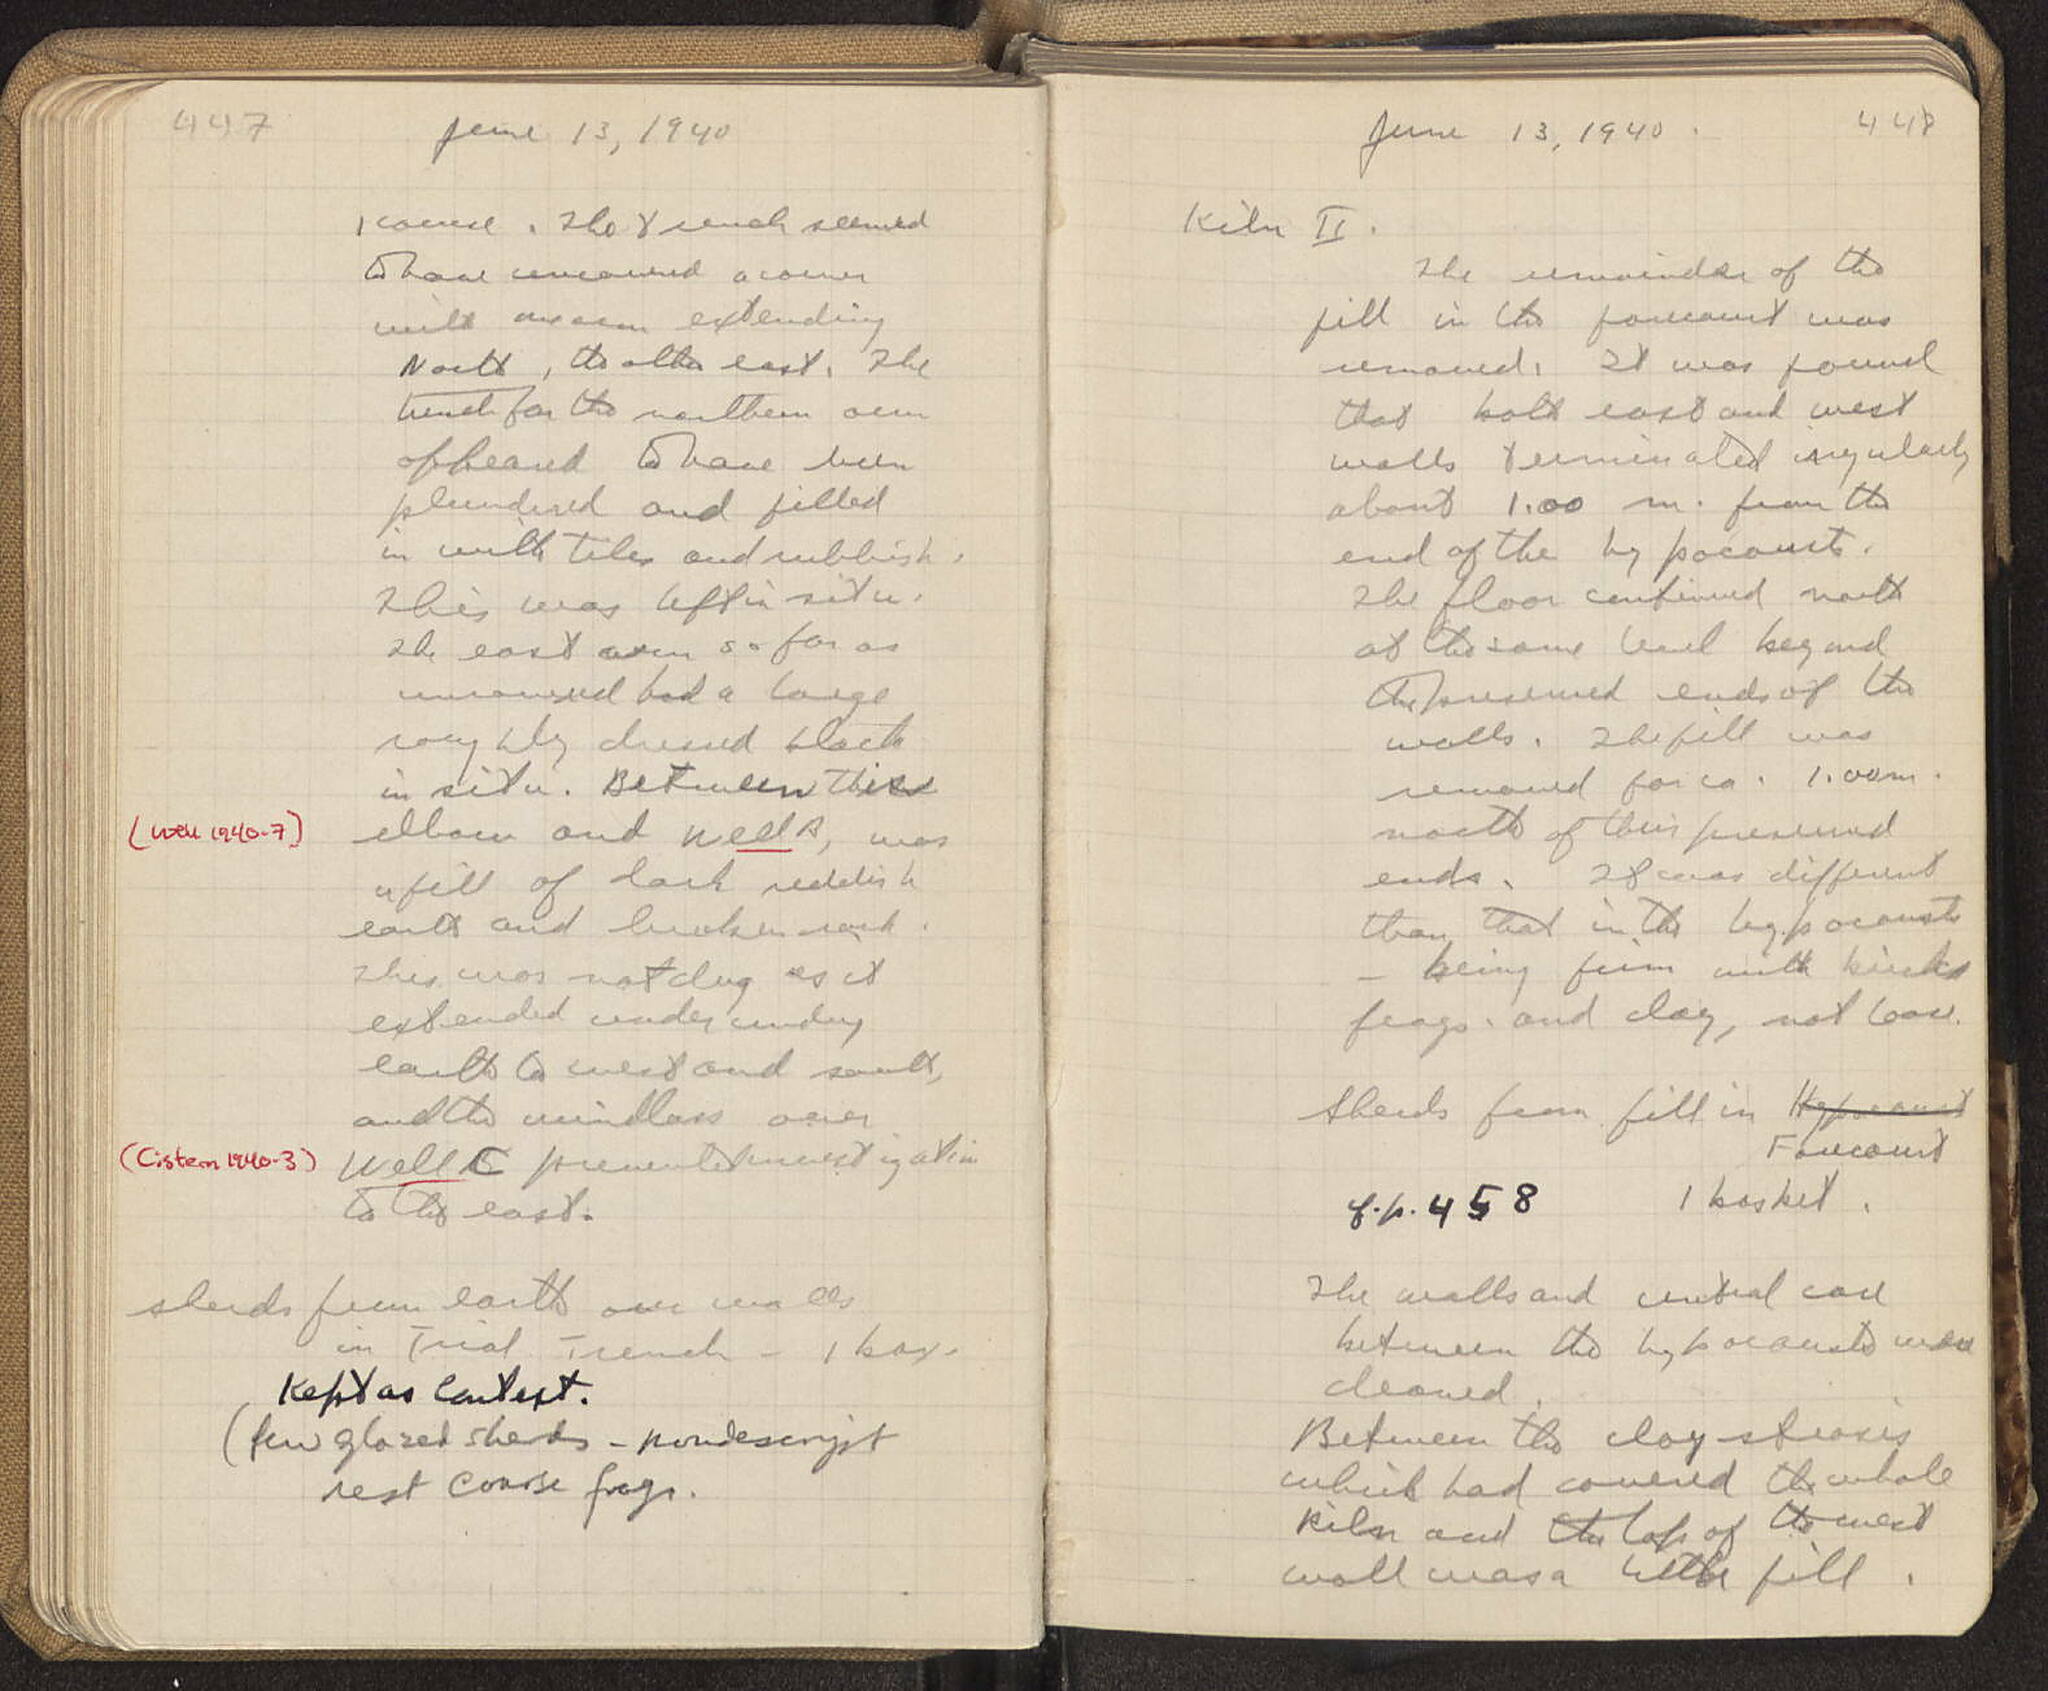 447
June 13, 1940
1 course. The trench seemed
to have uncovered a corner
with one arm extending
North, the other east. The
trench for the northern arm
appeared to have been
plundered and filled
in with tiles and rubbish.
This was left in situ.
The east arm so far as
uncovered had a large
roughly dressed block
in situ. Between this
(Well 1940-7)
elbow and Well A, was
a fill of dark reddish
earth and broken rock.
This was not dug as it
extended under undug
earth to west and south,
and the windlass over
(Cistern 1940-3)
Well C prevented investigation
to the east.
sherds from earth over walls
in Trial Trench - 1 box.
Kept as Context.
(few glazed sherds - nondescript
rest coarse frags.
June 13, 1940.
448
Kiln II.
The remainder of the
fill in the forecourt was
removed. It was found
that both east and west
walls terminated irregularly
about 1.00 m. from the
end of the hypocausts.
The floor continued north
at the same level beyond
the preserved ends of the
walls. The fill was
removed for ca. 1.00m.
north of their preserved
ends. It was different
than that in the hypocausts
- being firm with bricks
frags. and clay, not loose.
Sherds from fill in Hypocaust
Forecourt
cf. p. 458
1 basket.
The walls and central core
between the hypocausts were
cleaned.
Between the clay stosis
which had covered the whole
Kiln and the top of the west
wall was a little fill.